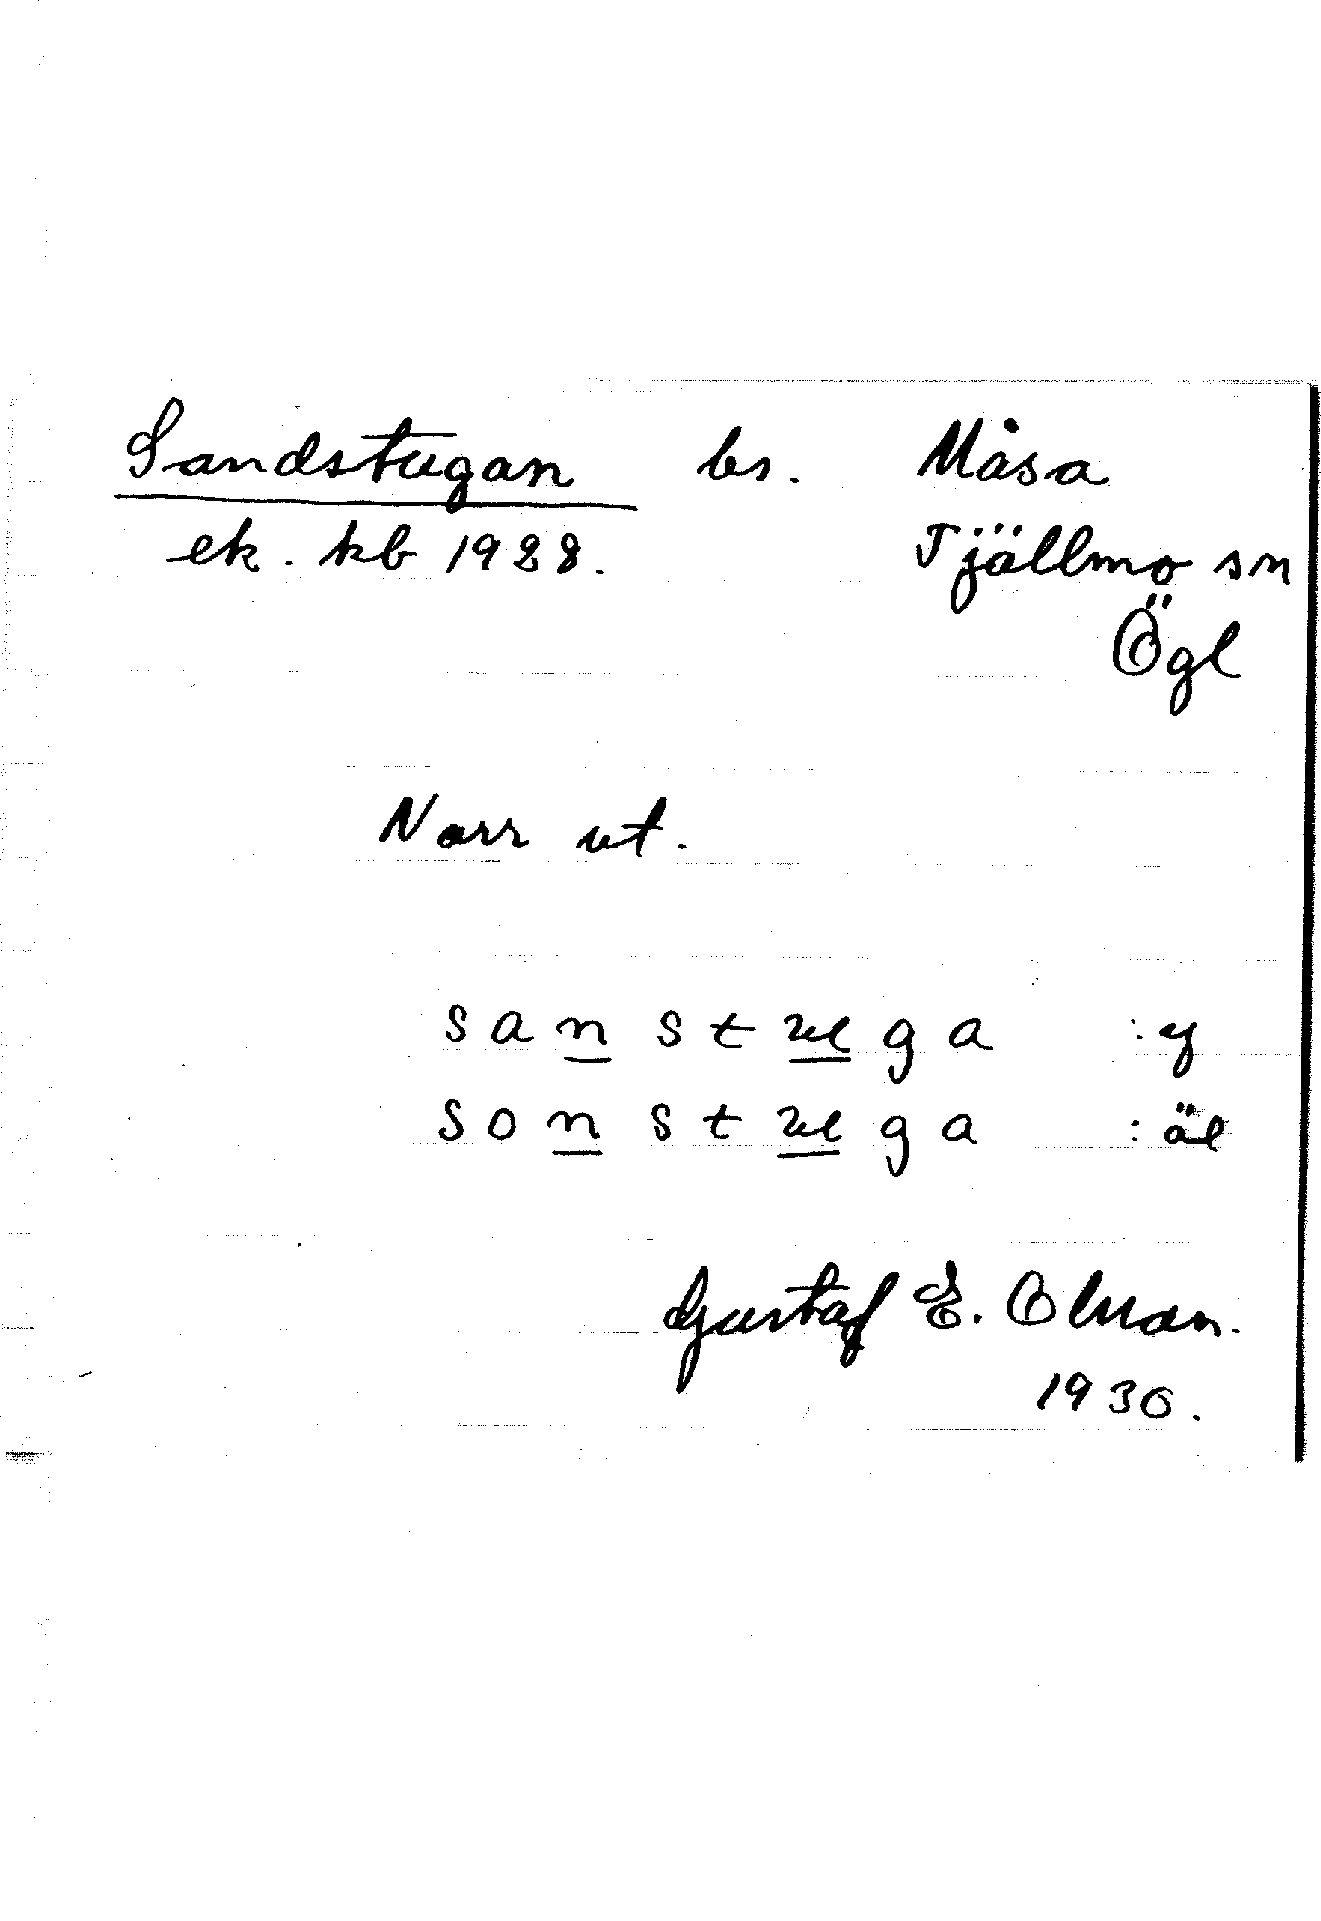 Sandstugan bs. Måsa
ek. kb 1928. Tjällmo sn
Ögl
Norr ut.
sanstuga : y
sonstuga : äl
Gustaf E. Olman.
1930.